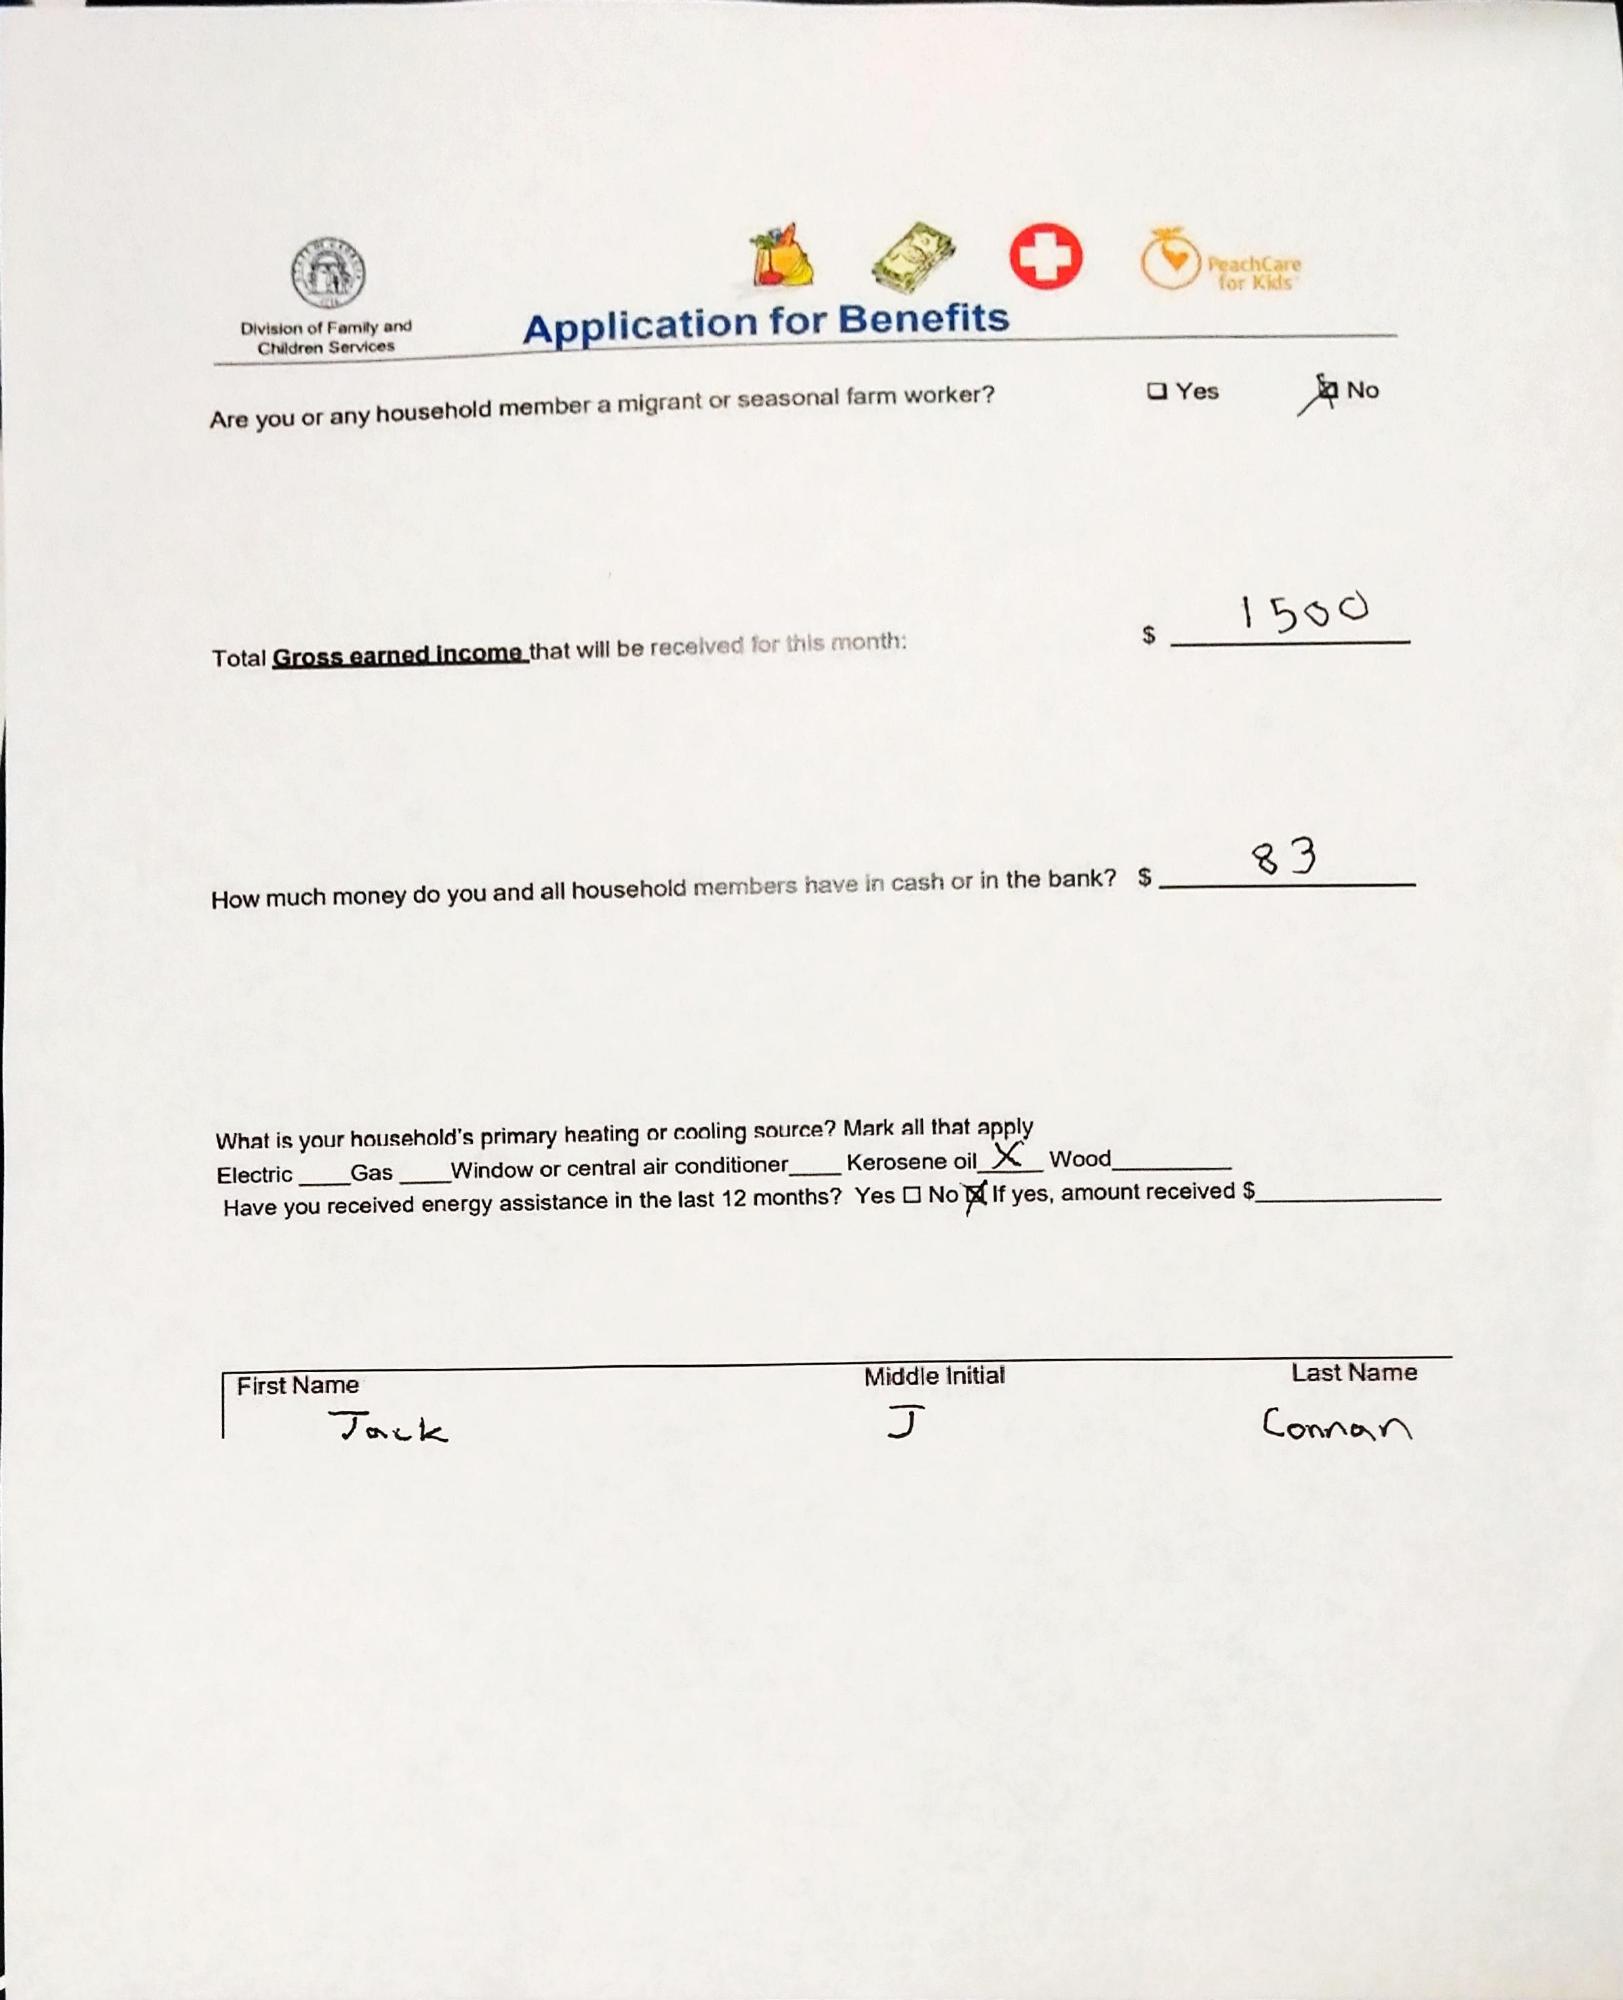 PeachCare
for Kids
Division of Family and
Children Services
Application for Benefits
Are you or any household member a migrant or seasonal farm worker? ☐ Yes ☒ No
Total Gross earned income that will be received for this month: $ 1500
How much money do you and all household members have in cash or in the bank? $ 83
What is your household's primary heating or cooling source? Mark all that apply
Electric ____Gas ____Window or central air conditioner____ Kerosene oil_X_ Wood_________
Have you received energy assistance in the last 12 months? Yes ☐ No ☒ If yes, amount received $_______________
First Name Middle Initial Last Name
Jack J Connan